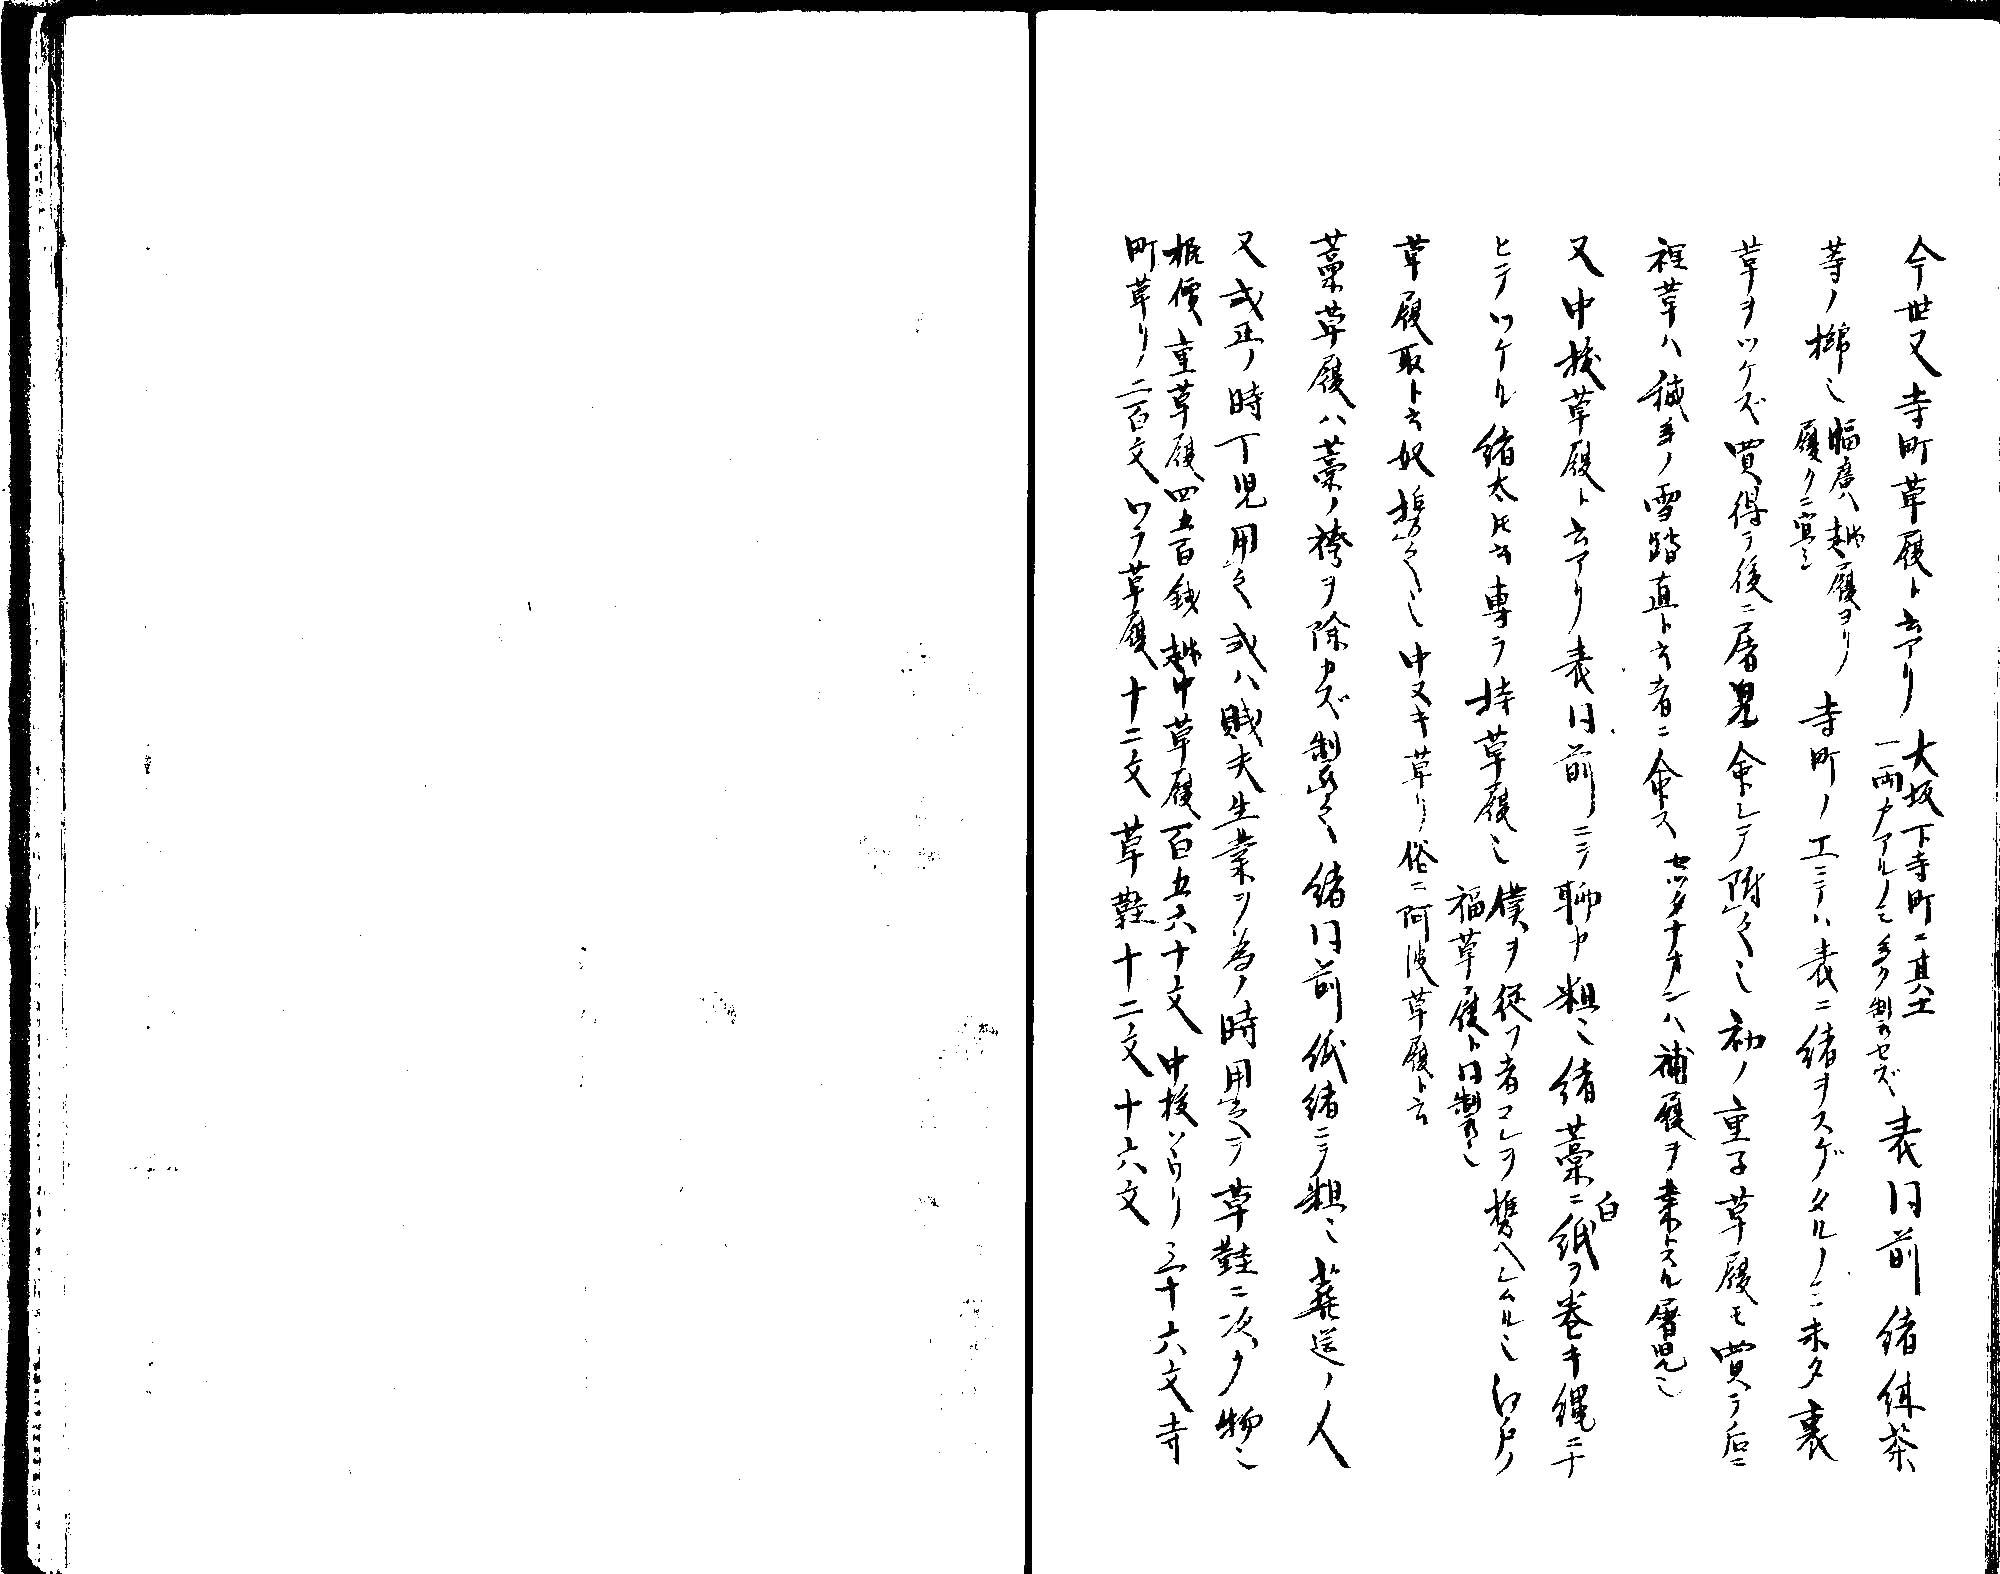 今世又寺町草履ト云アリ 大坂下寺町ニ其工
一両戸アルノミ多ク制セズ 表同前緒練茶
等ノ棉也 幅広ハ越履ヨリ
履クニ寛シ 寺町ノ工ニテハ表ニ緒ヲスゲタルノミ未タ裏
草ヲツケズ買得テ後ニ屠児ニ命シテ附之也初ノ重子草履モ買テ后ニ
裡草ハ穢多ノ雪踏直ト云者ニ命ス セツタナオシハ補履ヲ業トスル屠児也
又中抜草履ト云アリ表同前ニテ聊カ粗也緒藁ニ白紙ヲ巻キ縄ニナ
ヒテツケル緒太トモ云専ラ持草履也 僕ヲ従フ者コレヲ携ヘシムル也江戸ノ
福草履ト同制也
草履取ト云奴携之也中ヌキ草リ俗ニ阿波草履ト云
藁草履ハ藁ノ袴ヲ除カズ制之緒同前紙緒ニテ粗也葬送ノ人
又或正ノ時丁児用之或ハ賎夫生業ヲ為ノ時用之テ草鞋ニ次ク物也
概価重草履四五百銭越中草履百五六十文中抜ゾウリ三十六文寺
町草リノ二百文ワラ草履十二文草鞋十二文十六文